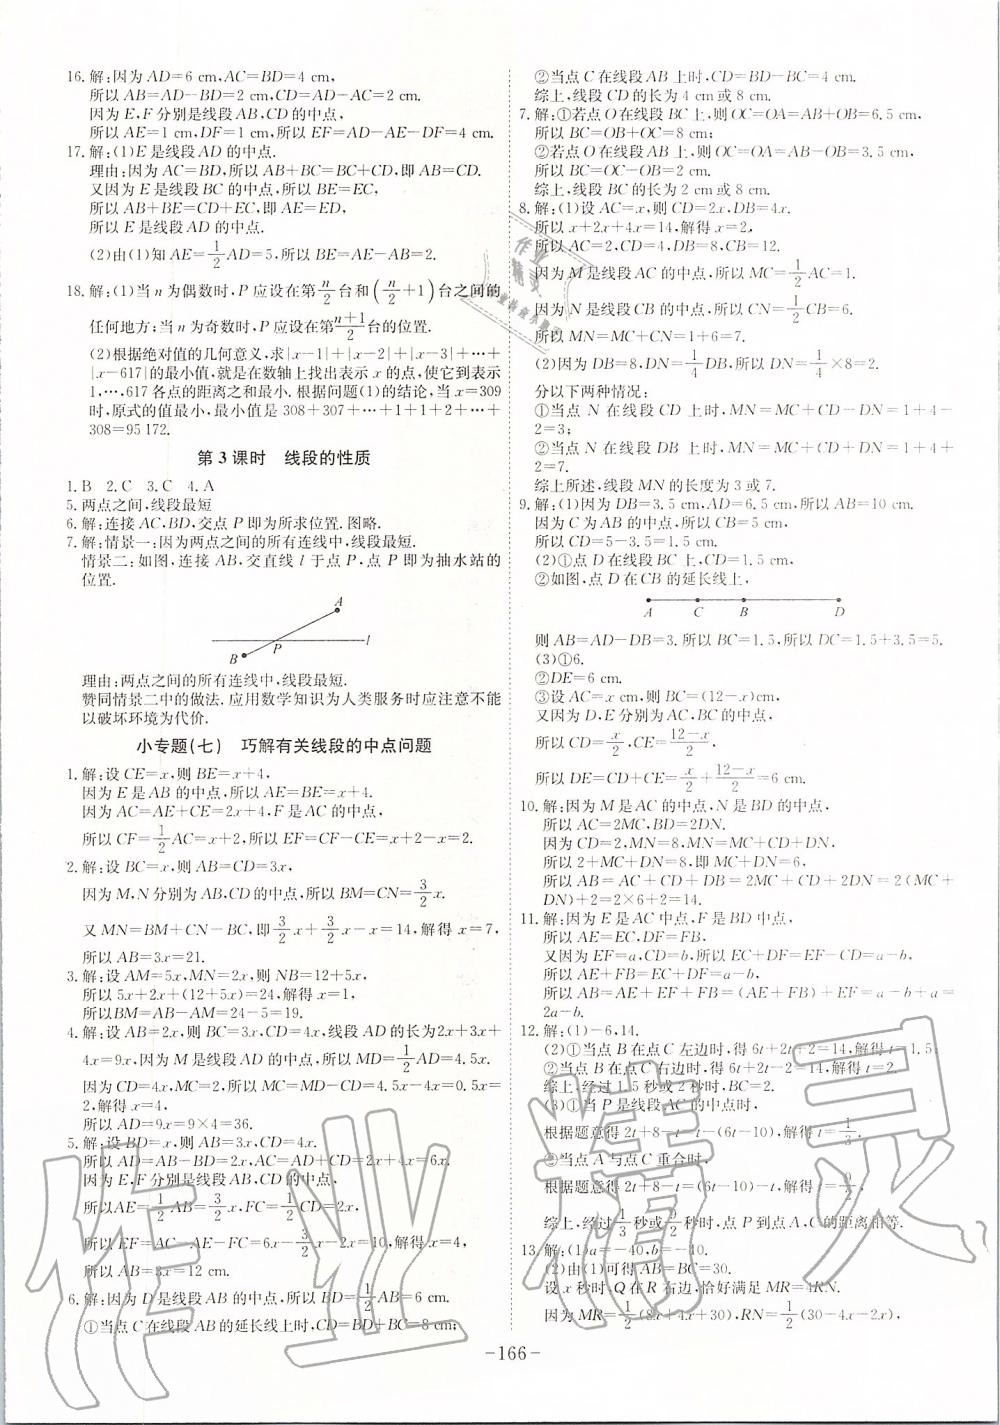 16. 解:因为 AD=6 cm,AC=BD=4 cm,
所以 AB=AD-BD=2 cm,CD=AD-AC=2 cm.
因为 E,F 分别是线段 AB,CD 的中点,
所以 AE=1 cm,DF=1 cm,所以 EF=AD-AE-DF=4 cm.
17. 解:(1)E 是线段 AD 的中点.
理由:因为 AC=BD,所以 AB+BC=BC+CD,即 AB=CD.
又因为 E 是线段 BC 的中点,所以 BE=EC,
所以 AB+BE=CD+EC,即 AE=ED,
所以 E 是线段 AD 的中点.
(2)由(1)知 AE=1/2AD=5,所以 BE=AE-AB=2.
18. 解:(1)当 n 为偶数时,P 应设在第n/2台和(n/2+1)台之间的
任何地方;当 n 为奇数时,P 应设在第(n+1)/2台的位置.
(2)根据绝对值的几何意义,求|x-1|+|x-2|+|x-3|+…+
|x-617|的最小值,就是在数轴上找出表示 x 的点,使它到表示
1,…,617 各点的距离之和最小. 根据问题(1)的结论,当 x=309
时,原式的值最小,最小值是 308+307+…+1+1+2+…+
308=95 172.
第 3 课时 线段的性质
1. B 2. C 3. C 4. A
5. 两点之间,线段最短
6. 解:连接 AC,BD,交点 P 即为所求位置. 图略.
7. 解:情景一:因为两点之间的所有连线中,线段最短.
情景二:如图,连接 AB,交直线 l 于点 P,点 P 即为抽水站的
位置.
A
P
l
B
理由:两点之间的所有连线中,线段最短.
赞同情景二中的做法. 应用数学知识为人类服务时应注意不能
以破坏环境为代价.
小专题(七) 巧解有关线段的中点问题
1. 解:设 CE=x,则 BE=x+4,
因为 E 是 AB 的中点,所以 AE=BE=x+4.
因为 AC=AE+CE=2x+4,F 是 AC 的中点,
所以 CF=1/2AC=x+2,所以 EF=CF-CE=x+2-x=2.
2. 解:设 BC=x,则 AB=CD=3x,
因为 M,N 分别为 AB,CD 的中点,所以 BM=CN=3/2x.
又 MN=BM+CN-BC,即3/2x+3/2x-x=14,解得 x=7,
所以 AB=3x=21.
3. 解:设 AM=5x,MN=2x,则 NB=12+5x,
所以 5x+2x+(12+5x)=24,解得 x=1,
所以BM=AB-AM=24-5=19.
4. 解:设 AB=2x,则 BC=3x,CD=4x,线段 AD 的长为2x+3x+
4x=9x,因为 M 是线段 AD 的中点,所以 MD=1/2AD=4.5x.
因为 CD=4x,MC=2,所以 MC=MD-CD=4.5x-4x=0.5x=
2,解得 x=4,
所以 AD=9x=9×4=36.
5. 解:设 BD=x,则 AB=3x,CD=4x,
所以 AD=AB-BD=2x,AC=AD+CD=2x+4x=6x.
因为 E,F 分别是线段 AB,CD 的中点,
所以AE=1/2AB=3/2x,FC=1/2CD=2x,
所以 EF=AC-AE-FC=6x-3/2x-2x=10,解得 x=4,
所以 AB=3x=12.
6. 解:因为 D 是线段 AB 的中点,所以 BD=1/2AB=6 cm.
①当点 C在线段 AB 的延长线上时,CD=BD+BC=8 cm;
②当点 C在线段 AB 上时,CD=BD-BC=4 cm.
综上,线段 CD 的长为 4 cm 或 8 cm.
7. 解:①若点 O在线段 AB 上,则 OC=OA=AB+OB=6.5 cm,
所以 BC=OB+OC=8 cm;
②若点 O在线段 AB 上,则 OC=OA=AB-OB=3.5 cm,
所以 BC=OC-OB=2 cm.
综上,线段 BC 的长为 2 cm 或 8 cm.
8. 解:(1)设 AC=x,则 CD=2x,DB=4x.
所以 x+2x+4x=14,解得 x=2,
所以 AC=2,CD=4,DB=8,CB=12.
因为 M 是线段 AC 的中点,所以 MC=1/2AC=1.
因为 N 是线段 CB 的中点,所以 CN=1/2CB=6.
所以 MN=MC+CN=1+6=7.
(2)因为 DB=8,DN=1/4DB,所以 DN=1/4×8=2.
分以下两种情况:
①当点 N 在线段 CD 上时,MN=MC+CD-DN=1+4-
2=3;
②当点 N 在线段 DB 上时,MN=MC+CD+DN=1+4+
2=7.
综上所述,线段 MN 的长度为 3 或 7.
9. 解:(1)因为 DB=3.5 cm,AD=6.5 cm,所以 AB=10 cm.
因为 C 为 AB 的中点,所以 CB=5 cm,
所以 CD=5-3.5=1.5 cm.
(2)①点 D 在线段 BC 上,CD=1.5 cm.
②如图,点 D 在CB 的延长线上,
A C B D
则 AB=AD-DB=3. 所以 BC=1.5,所以 DC=1.5+3.5=5.
(3)①6.
②DE=6 cm.
③设 AC=x cm,则 BC=(12-x)cm,
又因为 D,E 分别为 AC,BC 的中点,
所以 CD=x/2,CE=(12-x)/2,
所以 DE=CD+CE=x/2+(12-x)/2=6 cm.
10. 解:因为 M 是 AC 的中点,N 是 BD 的中点,
所以 AC=2MC,BD=2DN.
因为 CD=2,MN=8,MN=MC+CD+DN,
所以 2+MC+DN=8,即 MC+DN=6,
所以 AB=AC+CD+DB=2MC+CD+2DN=2(MC+
DN)+2=2×6+2=14.
11. 解:因为 E 是 AC 中点,F 是 BD 中点,
所以 AE=EC,DF=FB,
又因为 EF=a,CD=b,所以 EC+DF=EF-CD=a-b,
所以 AE+FB=EC+DF=a-b,
所以 AB=AE+EF+FB=(AE+FB)+EF=a-b+a=
2a-b.
12. 解:(1)-6,14.
(2)①当点 B 在点 C 左边时,得 6t+2t+2=14,解得 t=1.5;
②当点 B 在点 C 右边时,得 6t+2t-2=14,解得 t=2.
综上,经过 1.5 秒或 2 秒时,BC=2.
(3)①当 P 是线段 AC 的中点时,
根据题意得 2t+8-t=t-(6t-10),解得 t=1/3.
②当点 A 与点 C 重合时,
综上,经过1/3秒或9/2秒时,点 P 到点 A,C 的距离相等.
13. 解:(1)a=-40,b=-10.
(2)由(1)可得 AB=BC=30.
设 x 秒时,Q 在 R 右边,恰好满足 MR=4RN.
因为 MR=1/2(8x+4x+30),RN=1/2(30-4x-2x),
-166-
作业精灵